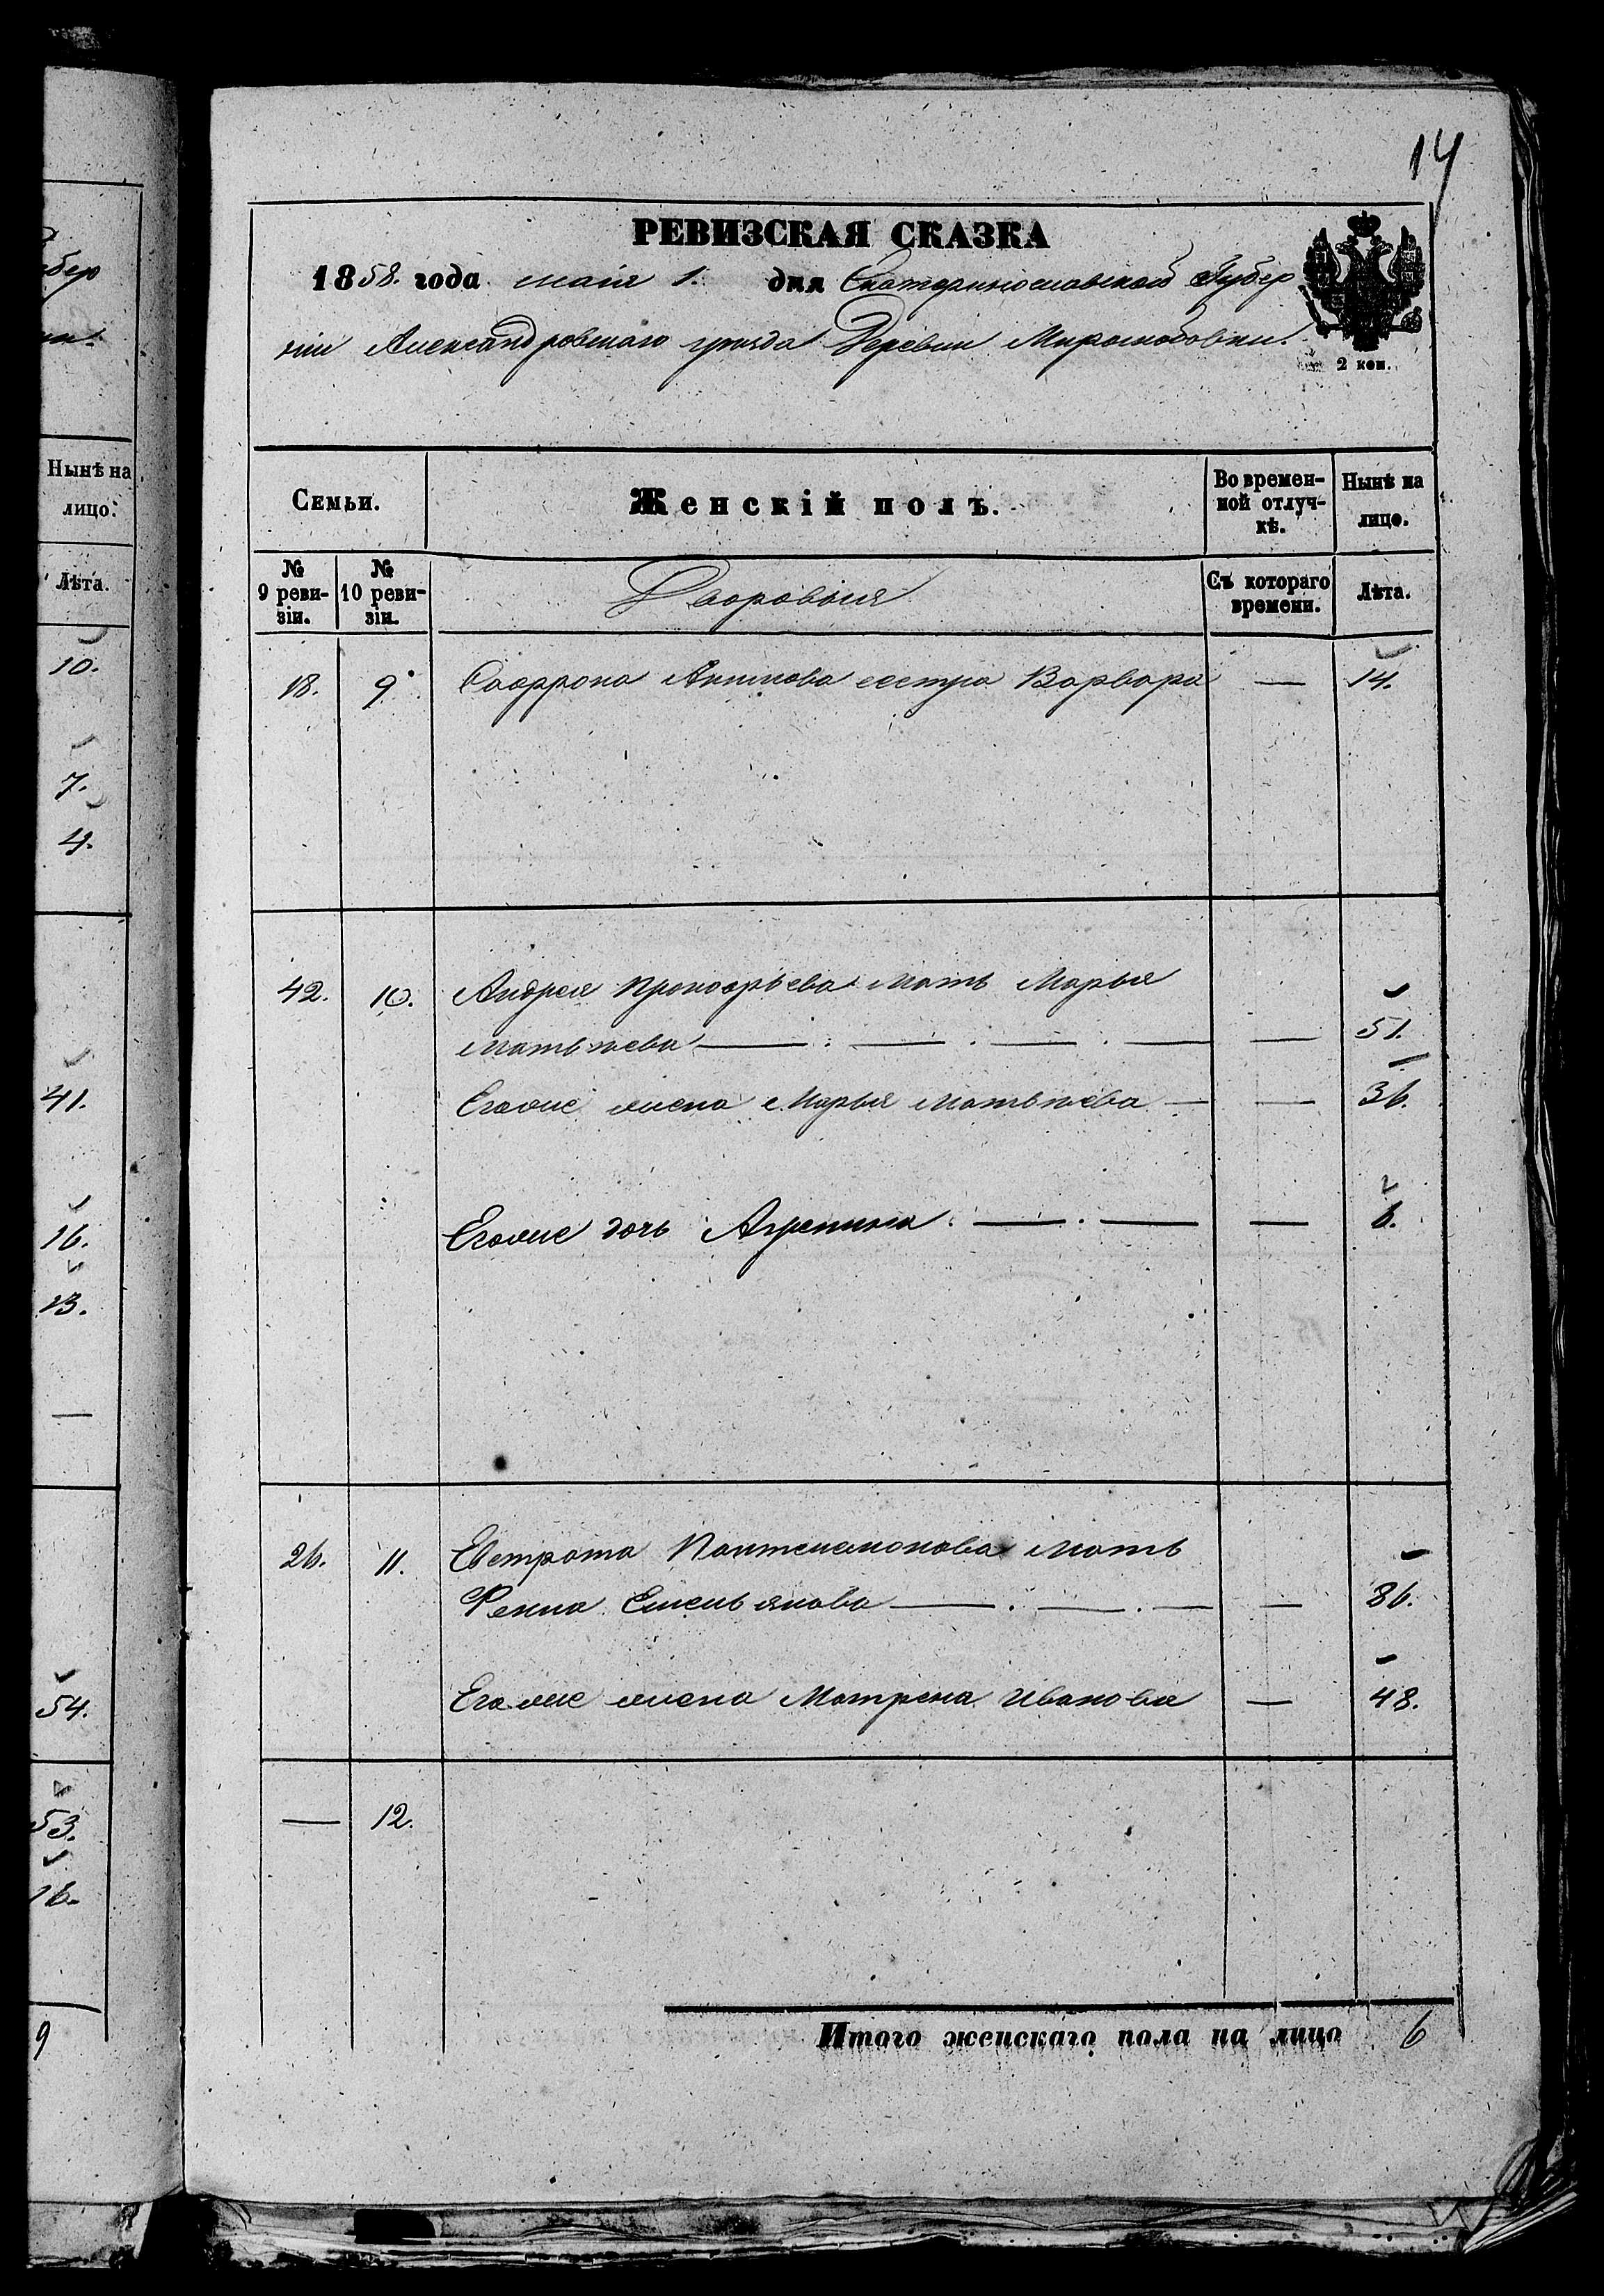 бер
ии.
Нынѣ на
лицо.
Лѣта.
10.
7.
4.
41.
16.
13.
—
54.
53.
16.
9
14
РЕВИЗСКАЯ СКАЗКА
1858. года маія 1. дня Екатеринославской Губер
ніи Александровскаго уѣзда Деревни Миролюбовки.
2 коп.
Семьи.
Женскій полъ.
Во времен-
ной отлуч-
кѣ.
Нынѣ на
лицо.
№
9 реви-
зіи.
№
10 реви-
зіи.
Дворовыя
Съ котораго
времени.
Лѣта.
18. 9. Сафрона Акимова сестра Варвара — 14.
42. 10. Андрея Прокофьева мать Марья
Матвѣева — — 51.
Егоже жена Марья Матвѣева — — 36.
Егоже дочь Агрепина — — 6.
26. 11. Евстрата Пантелемонова мать
Фекла Емельянова — — 86.
Егоже жена Матрена Иванова — 48.
— 12.
Итого женскаго пола на лицо 6